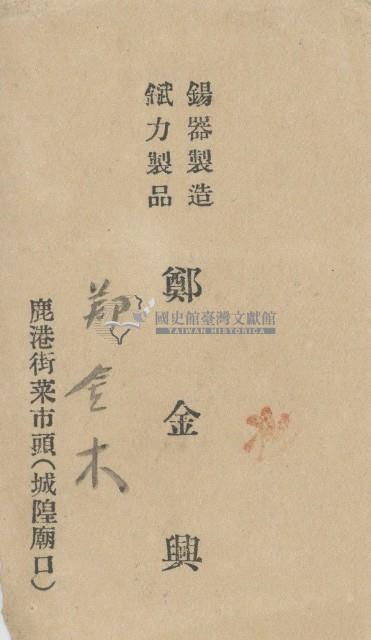 錫器製造
鉽力製品
鄭金興
鄭金木
鹿港街菜市頭(城隍廟口)
國史館臺灣文獻館
TAIWAN HISTORICA